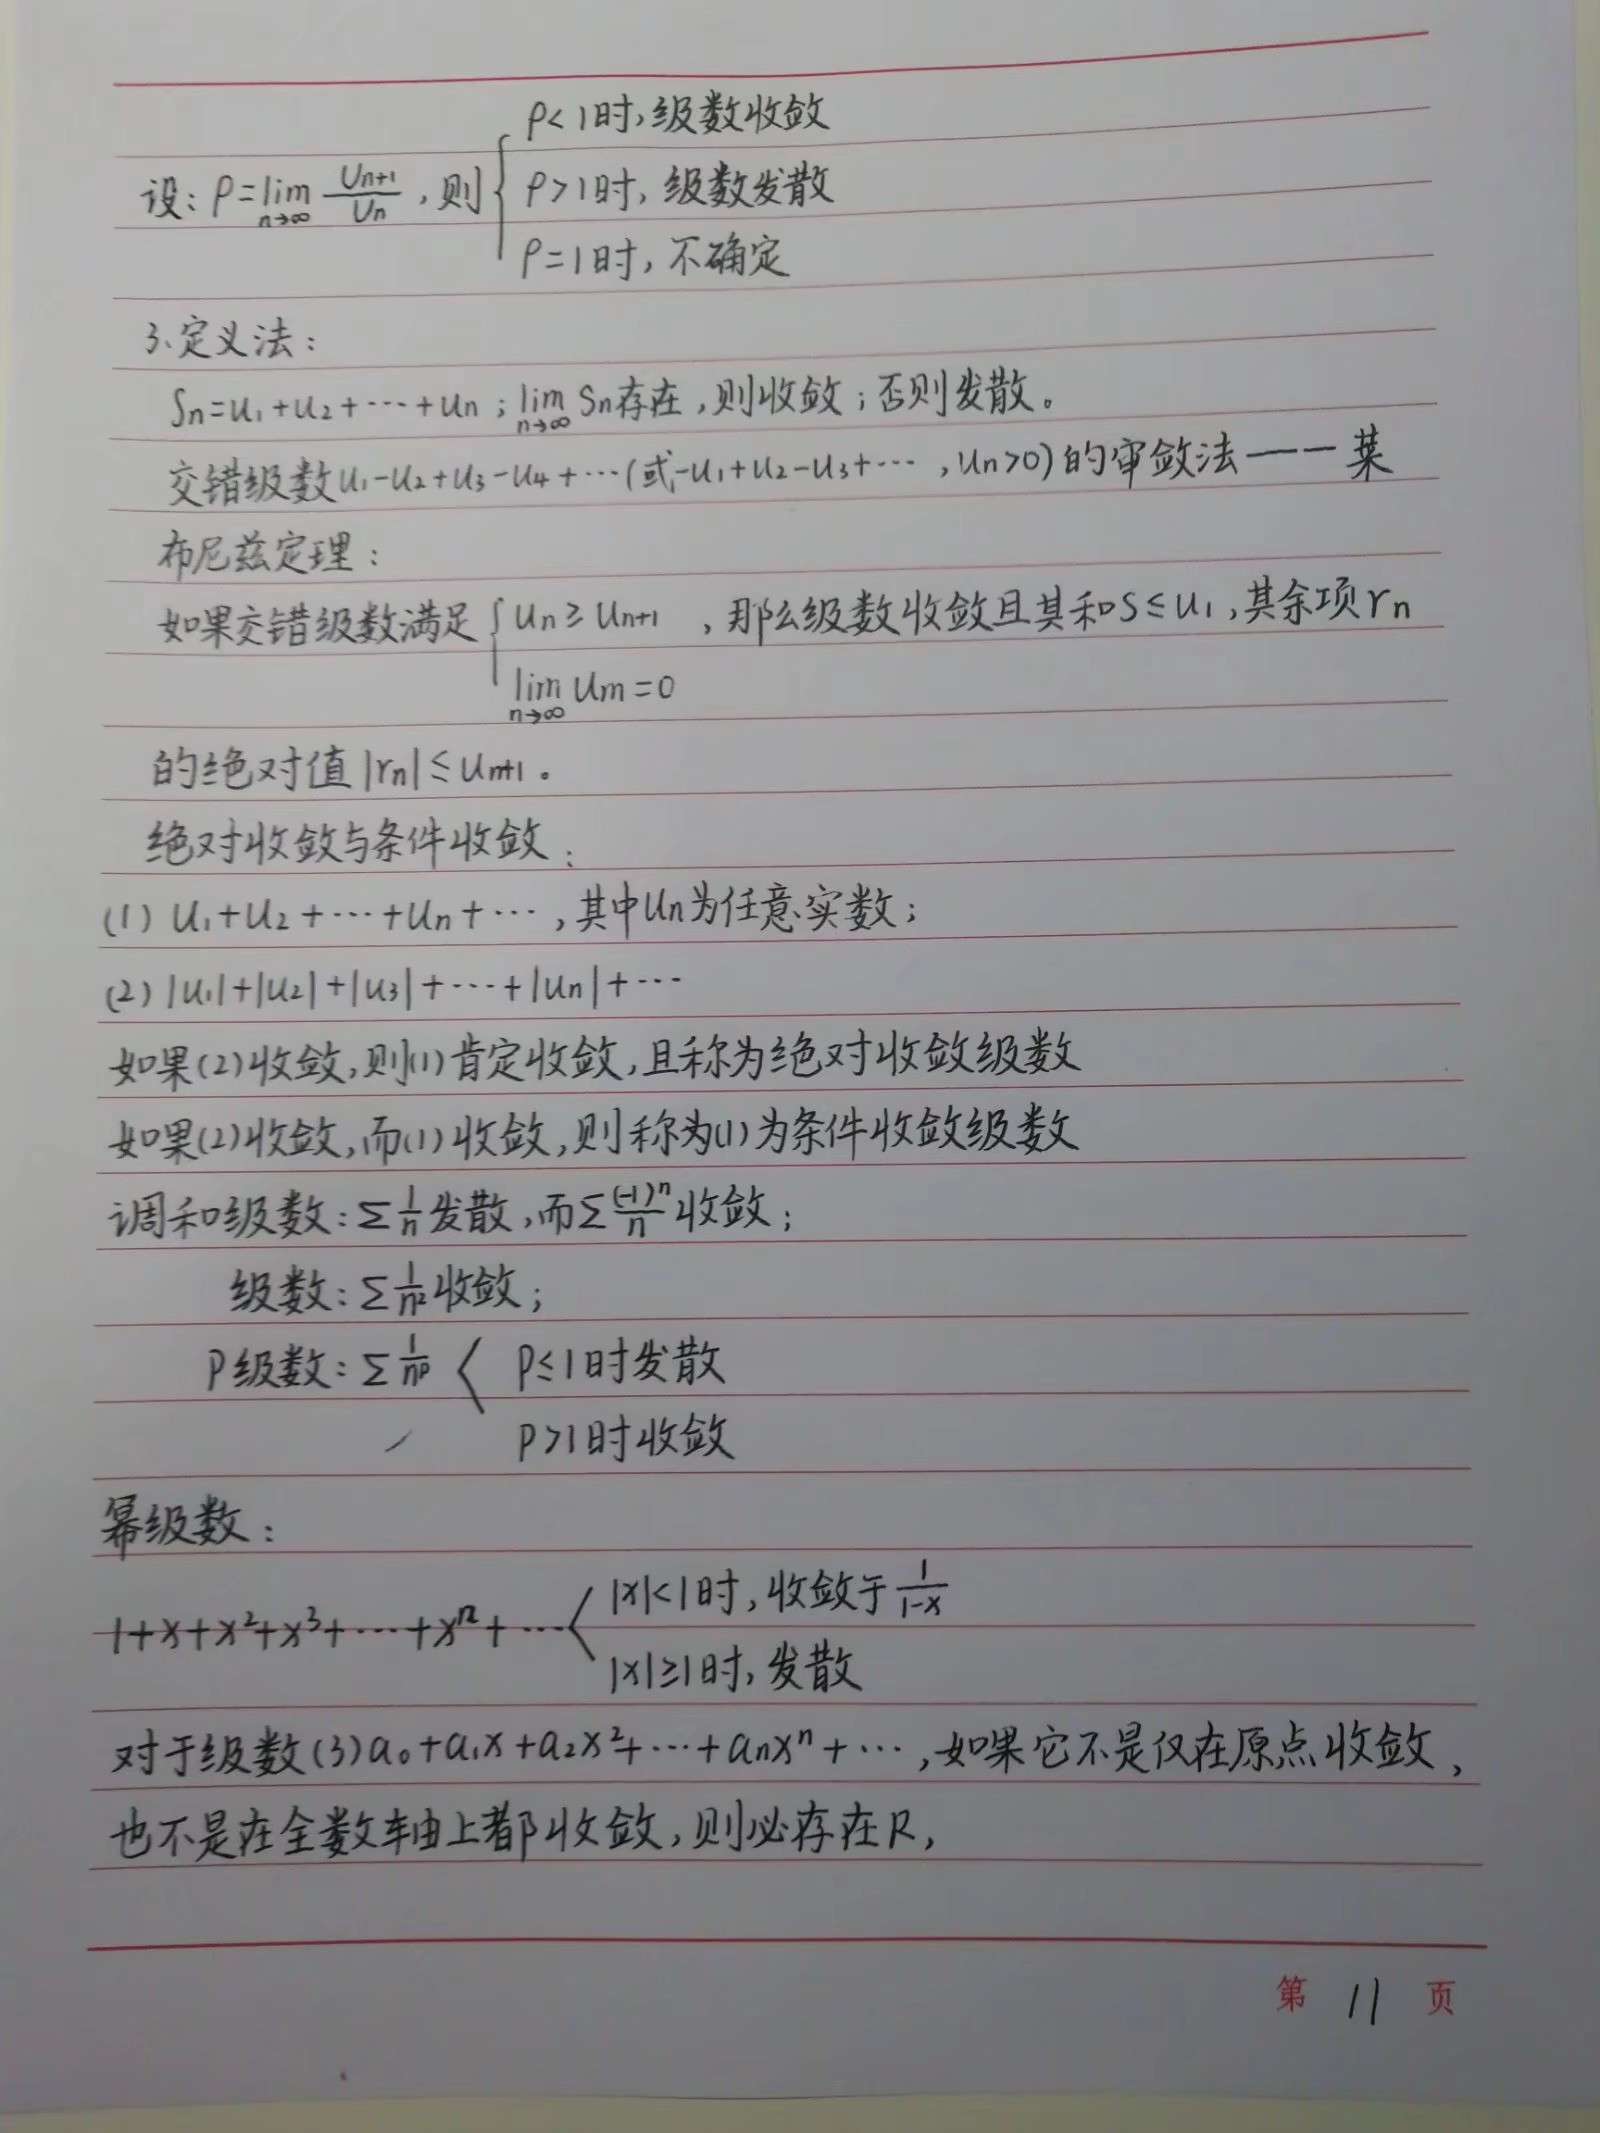 ρ<1时,级数收敛
设: ρ=lim n→∞ Un+1/Un ,则{ ρ>1时, 级数发散
ρ=1时, 不确定
3、定义法:
Sn=u1+u2+…+un ; lim n→∞ Sn存在,则收敛;否则发散。
交错级数u1-u2+u3-u4+…(或-u1+u2-u3+… ,un>0)的审敛法——莱
布尼兹定理:
如果交错级数满足{ un≥un+1 ,那么级数收敛且其和S≤u1,其余项rn
lim n→∞ um=0
的绝对值|rn|≤un+1。
绝对收敛与条件收敛:
(1) u1+u2+…+un+…,其中un为任意实数;
(2)|u1|+|u2|+|u3|+…+|un|+…
如果(2)收敛,则(1)肯定收敛,且称为绝对收敛级数
如果(2)收敛,而(1)收敛,则称为(1)为条件收敛级数
调和级数:Σ1/n发散,而Σ(-1)ⁿ/n收敛;
级数:Σ1/n²收敛;
P级数:Σ1/nᵖ〈 p≤1时发散
p>1时收敛
幂级数:
|x|<1时,收敛于1/1-x
1+x+x²+x³+…+xⁿ+…〈
|x|≥1时,发散
对于级数(3)a0+a1x+a2x²+…+anxⁿ+…,如果它不是仅在原点收敛,
也不是在全数轴上都收敛,则必存在R,
第 11 页